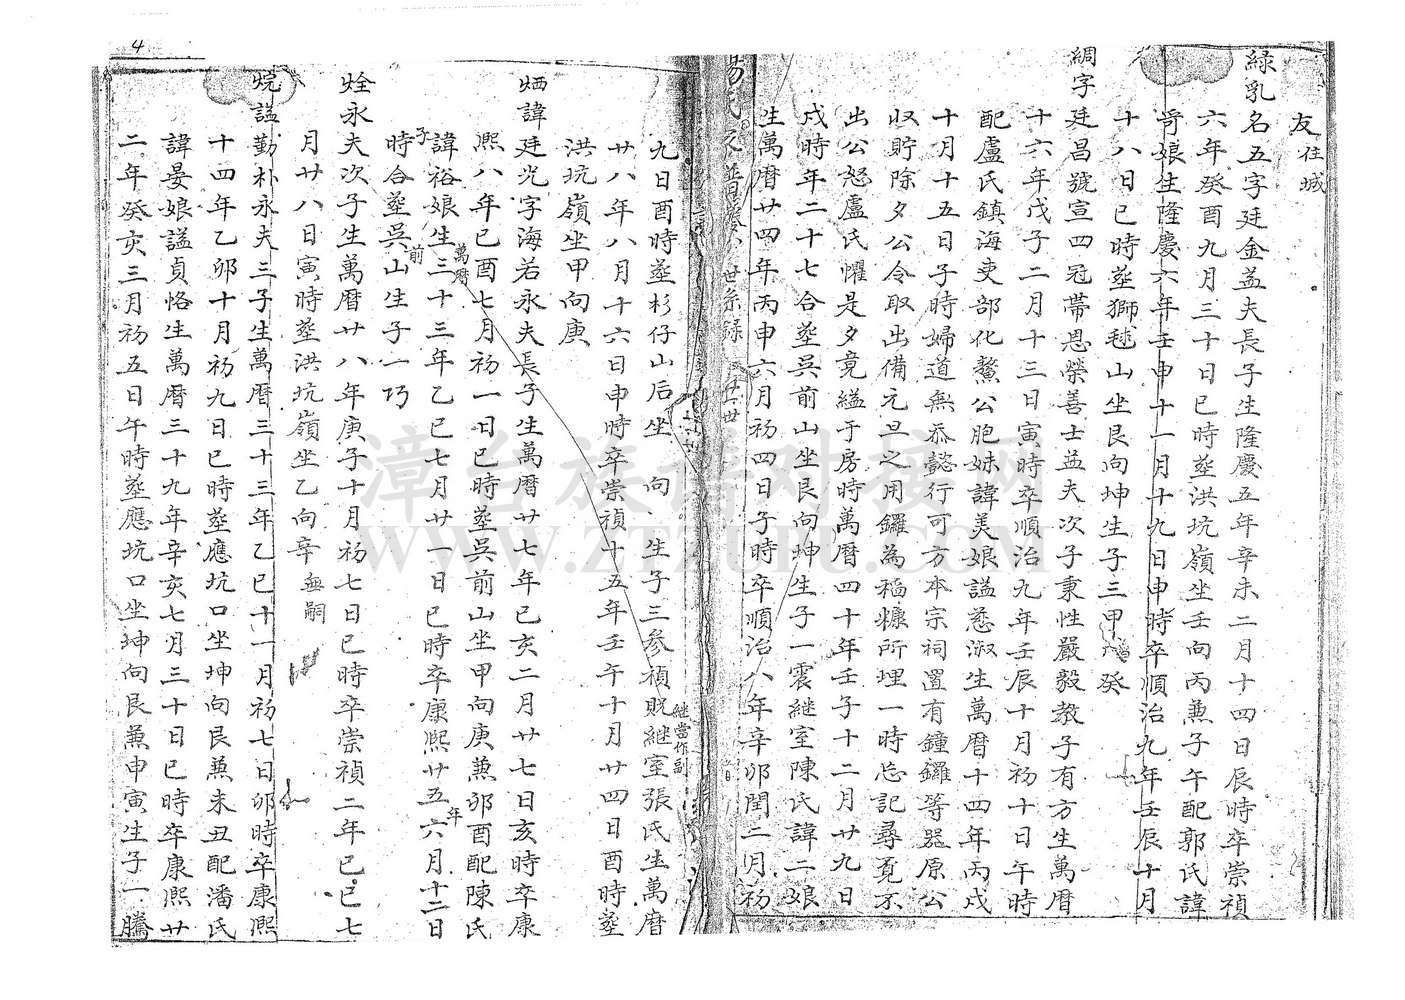 友住城
緑乳名五字廷金孟夫長子生隆慶五年辛未二月十四日辰時卒崇禎
六年癸酉九月三十日巳時塟洪坑嶺坐壬向丙兼子午配郭氏諱
娘生隆慶六年壬申十一月十九日申時卒順治九年壬辰十月
十八日巳時塟獅毬山坐艮向坤生子三甲 癸
綢字廷昌號宣四冠帶恩榮善士孟夫次子秉性嚴毅教子有方生萬曆
十六年戊子二月十三日寅時卒順治九年壬辰十月初十日午時
配盧氏鎮海吏部化鰲公胞妹諱美娘謚慈淑生萬曆十四年丙戌
十月十五日子時婦道無忝懿行可方本宗祠置有鐘鑼等器原公
收貯除夕公令取出備元旦之用鑼為稻糠所埋一時忘記尋覔不
出公怒盧氏懼是夕竟縊于房時萬曆四十年壬子十二月廿九日
戌時年二十七合塟吳前山坐艮向坤生子一震継室陳氏諱二娘
生萬曆廿四年丙申六月初四日子時卒順治八年辛卯閏二月初
世系錄 廿世
九日酉時塟杉仔山后坐 向 生子三参禎贶継室張氏生萬曆
継當作副
廿八年八月十六日申時卒崇禎十五年壬午十月廿四日酉時塟
洪坑嶺坐甲向庚
㶽諱廷光字海若永夫長子生萬曆廿七年己亥二月廿七日亥時卒康
熙八年己酉七月初一日巳時塟吳前山坐甲向庚兼卯酉配陳氏
諱裕娘生萬曆三十三年乙巳七月廿一日巳時卒康熙廿五年六月十二日
子時合塟吳前山生子一巧
烇永夫次子生萬曆廿八年庚子十月初七日巳時卒崇禎二年己巳七
月廿八日寅時塟洪坑嶺坐乙向辛 無嗣
烷謚勤朴永夫三子生萬曆三十三年乙巳十一月初七日卯時卒康熙
十四年乙卯十月初九日巳時塟應坑口坐坤向艮兼未丑配潘氏
諱晏娘謚貞恪生萬曆三十九年辛亥七月三十日巳時卒康熙廿
二年癸亥三月初五日午時塟應坑口坐坤向艮兼申寅生子一騰
4
漳台族谱对接网
WWW.ZTZUPU.COM